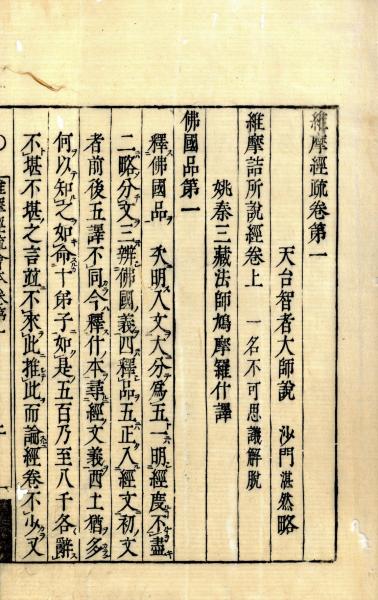 維摩經疏卷第一
天台智者大師說　沙門湛然略
維摩詰所說經卷上　一名不可思議解脫
姚秦三藏法師鳩摩羅什譯
佛國品第一
釋佛國品　次明入文大分爲五一明經度不盡
二略分文三辨佛國義四釋品五正入經文初文
者前後五譯不同今釋什本尋經文義西土猶多
何以知之如命十弟子如是五百乃至八千各辭
不堪不堪之言並不來此推此而論經卷不少又